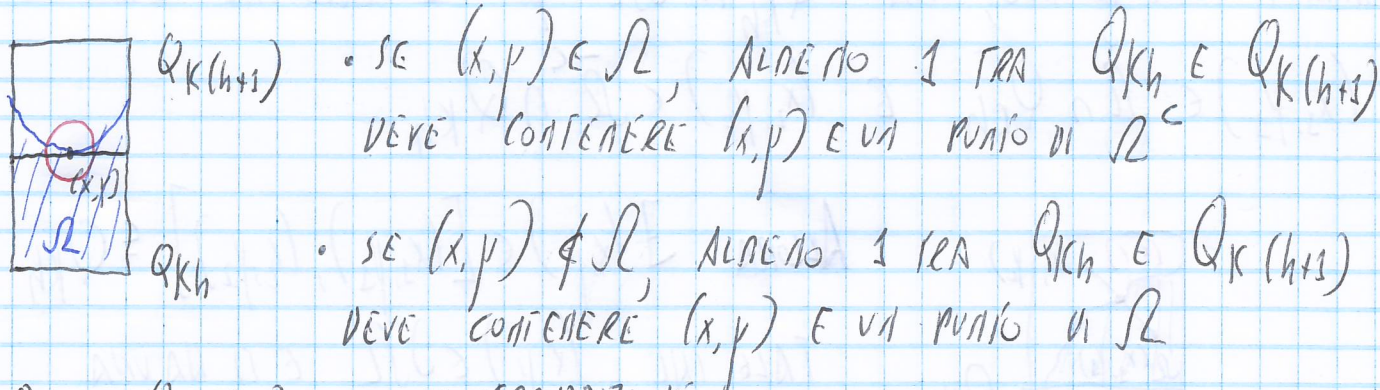 Q_{K(h+1)} • SE (x,y) ∈ Ω, ALMENO 1 TRA Q_{Kh} E Q_{K(h+1)}
DEVE CONTENERE (x,y) E UN PUNTO DI Ω^C
(x,y)
Ω
Q_{Kh} • SE (x,y) ∉ Ω, ALMENO 1 TRA Q_{Kh} E Q_{K(h+1)}
DEVE CONTENERE (x,y) E UN PUNTO DI Ω